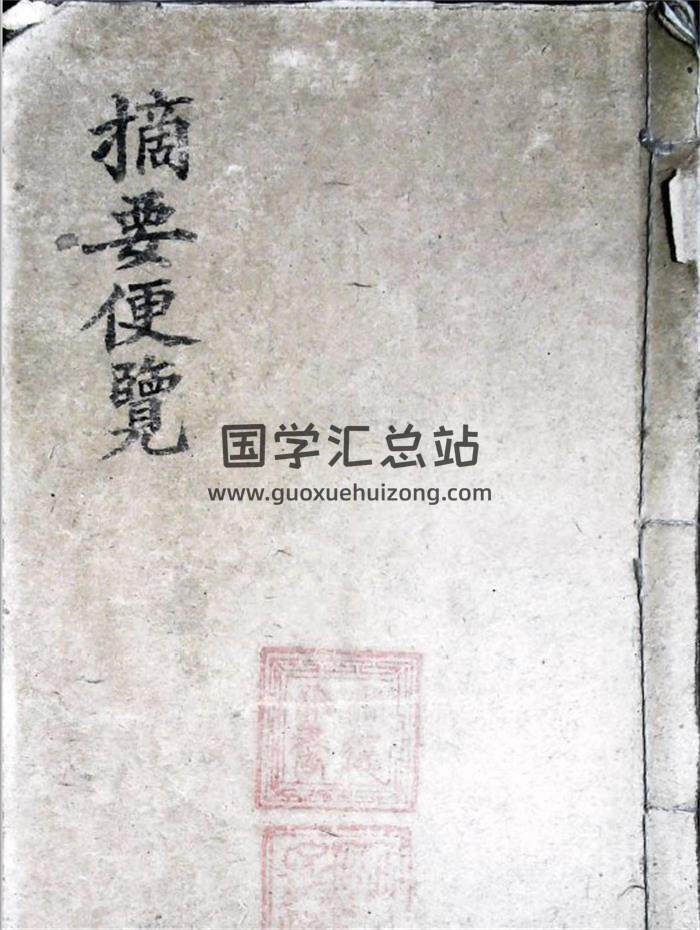 摘要便覽
国学汇总站
www.guoxuehuizong.com